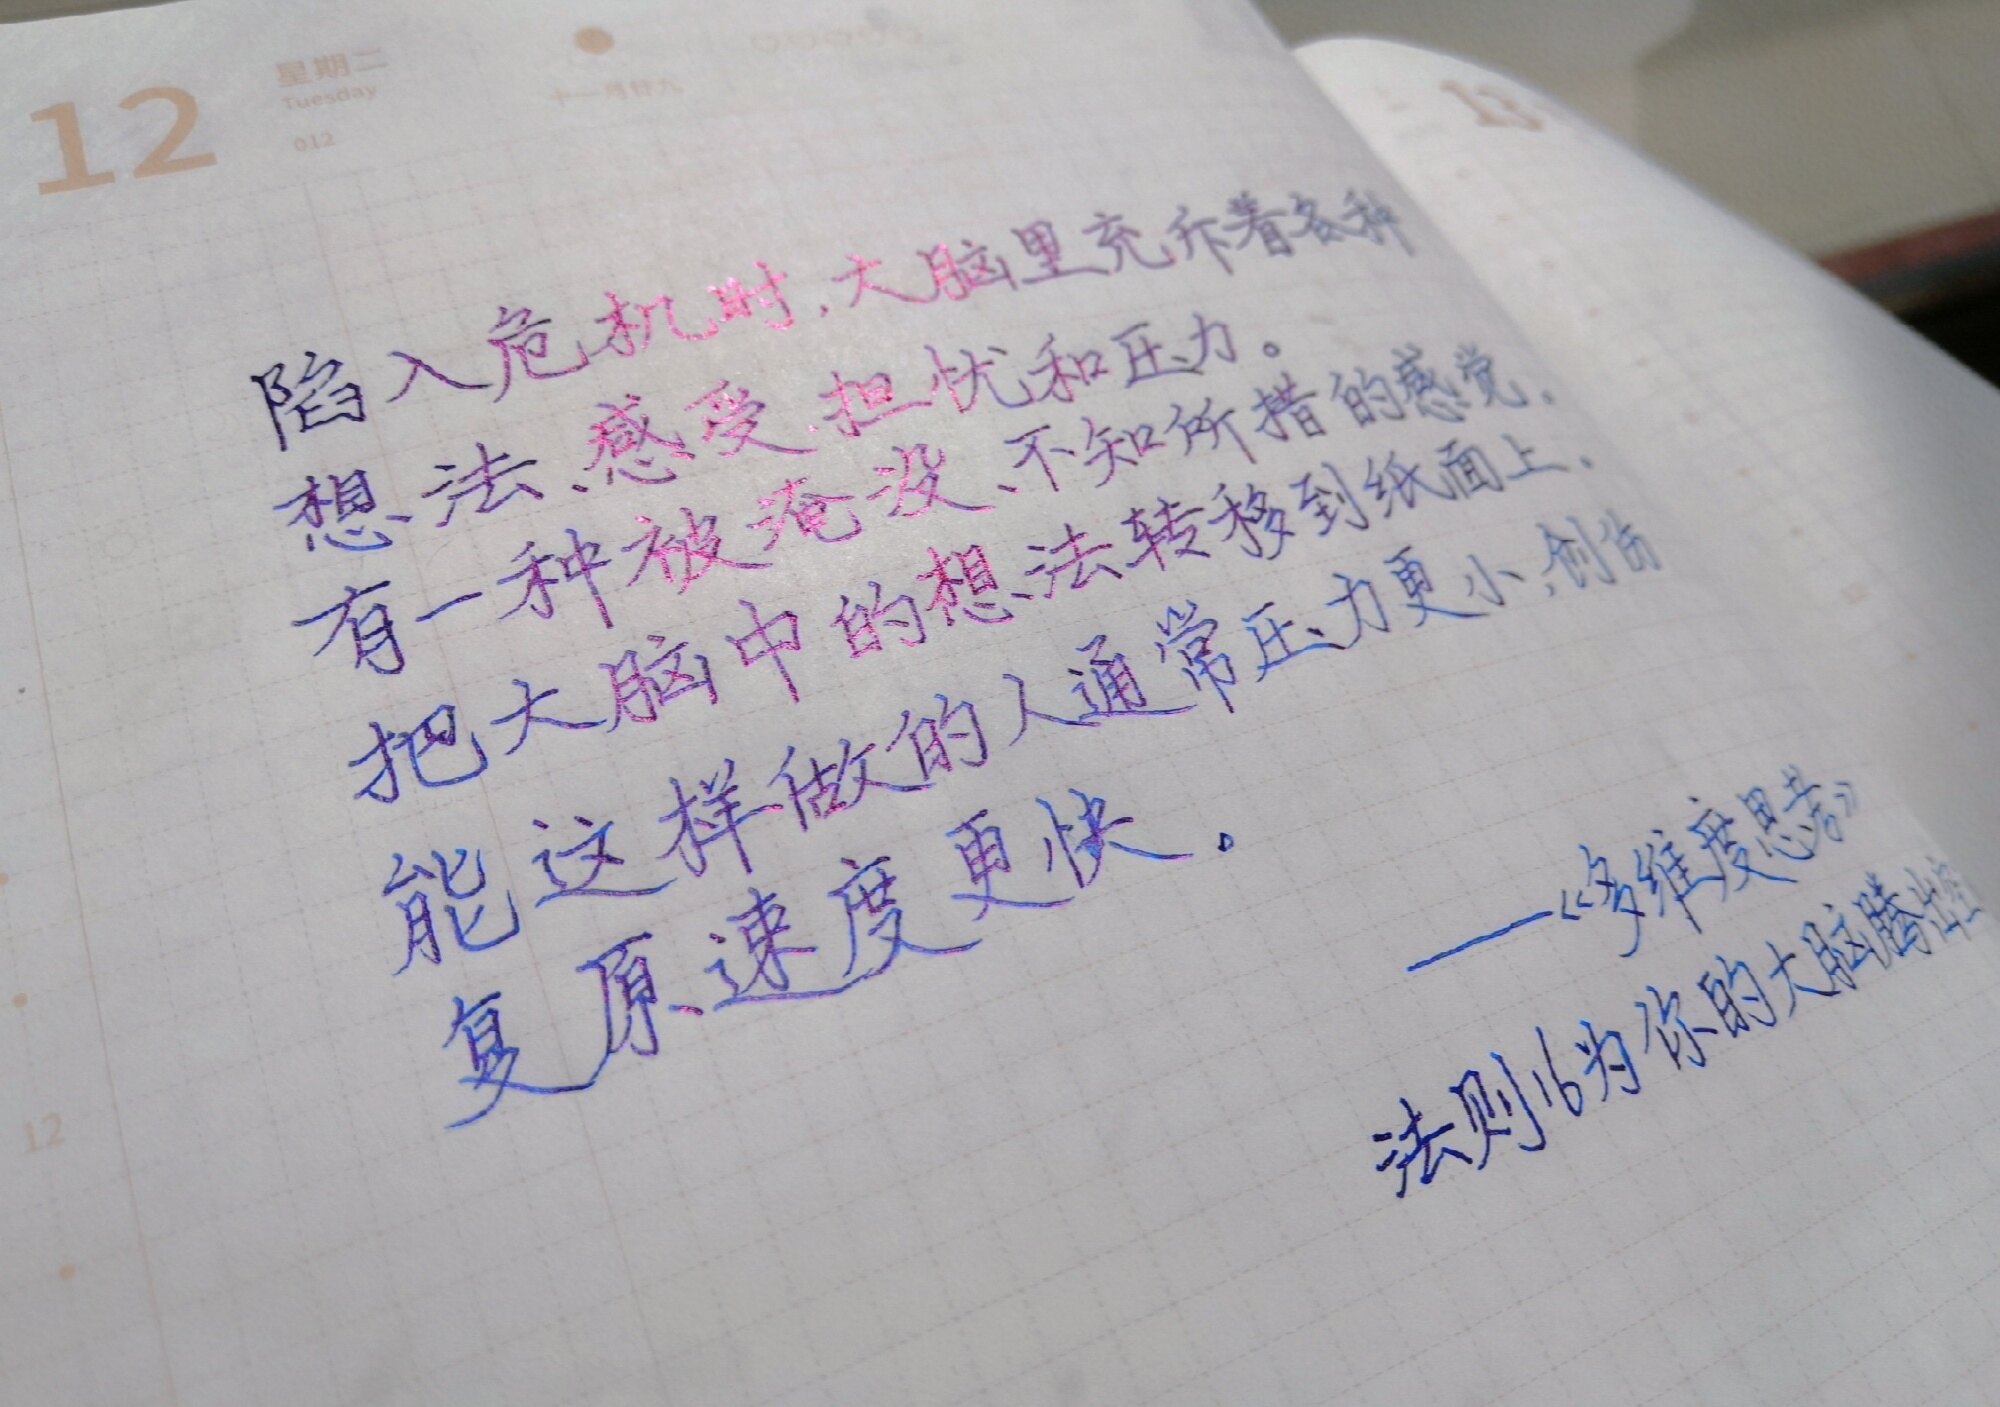 12
星期二
Tuesday
012
十一月廿九
13
陷入危机时,大脑里充斥着各种
想法、感受、担忧和压力。
有一种被淹没、不知所措的感觉,
把大脑中的想法转移到纸面上,
能这样做的人通常压力更小,创伤
复原速度更快。
——《多维度思考》
法则16为你的大脑腾出
12